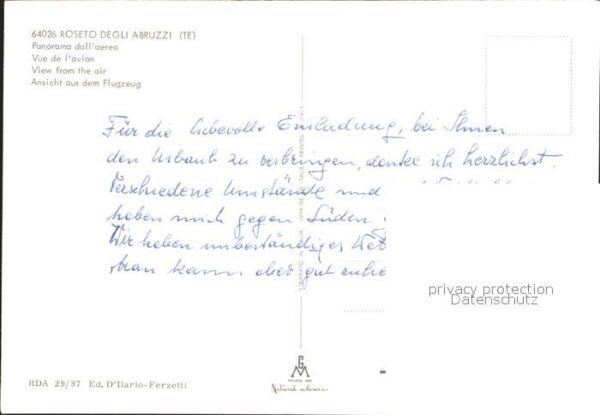 64026 ROSETO DEGLI ABRUZZI (TE)
Panorama dall'aereo
Vue de l'avion
View from the air
Ansicht aus dem Flugzeug
Für die liebevolle Einladung, bei Ihnen
den Urlaub zu verbringen, danke ich herzlichst.
Verschiedene Umstände und
haben mich gegen Süden
Wir haben unbeständiges Wet
kann aber gut
privacy protection
Datenschutz
RDA 29/37 Ed. D'Ilario-Ferzetti